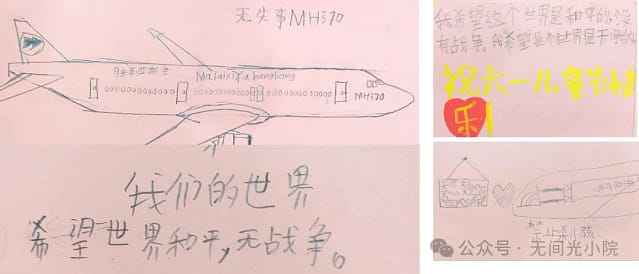 无失事MH370
Malaixiya hangkong
MH370
我们的世界
希望世界和平，无战争。
我希望这个世界是和平的，没
有战争。我希望这个世界是干净的
祝六一儿童节快
乐！
公众号·无间光小院